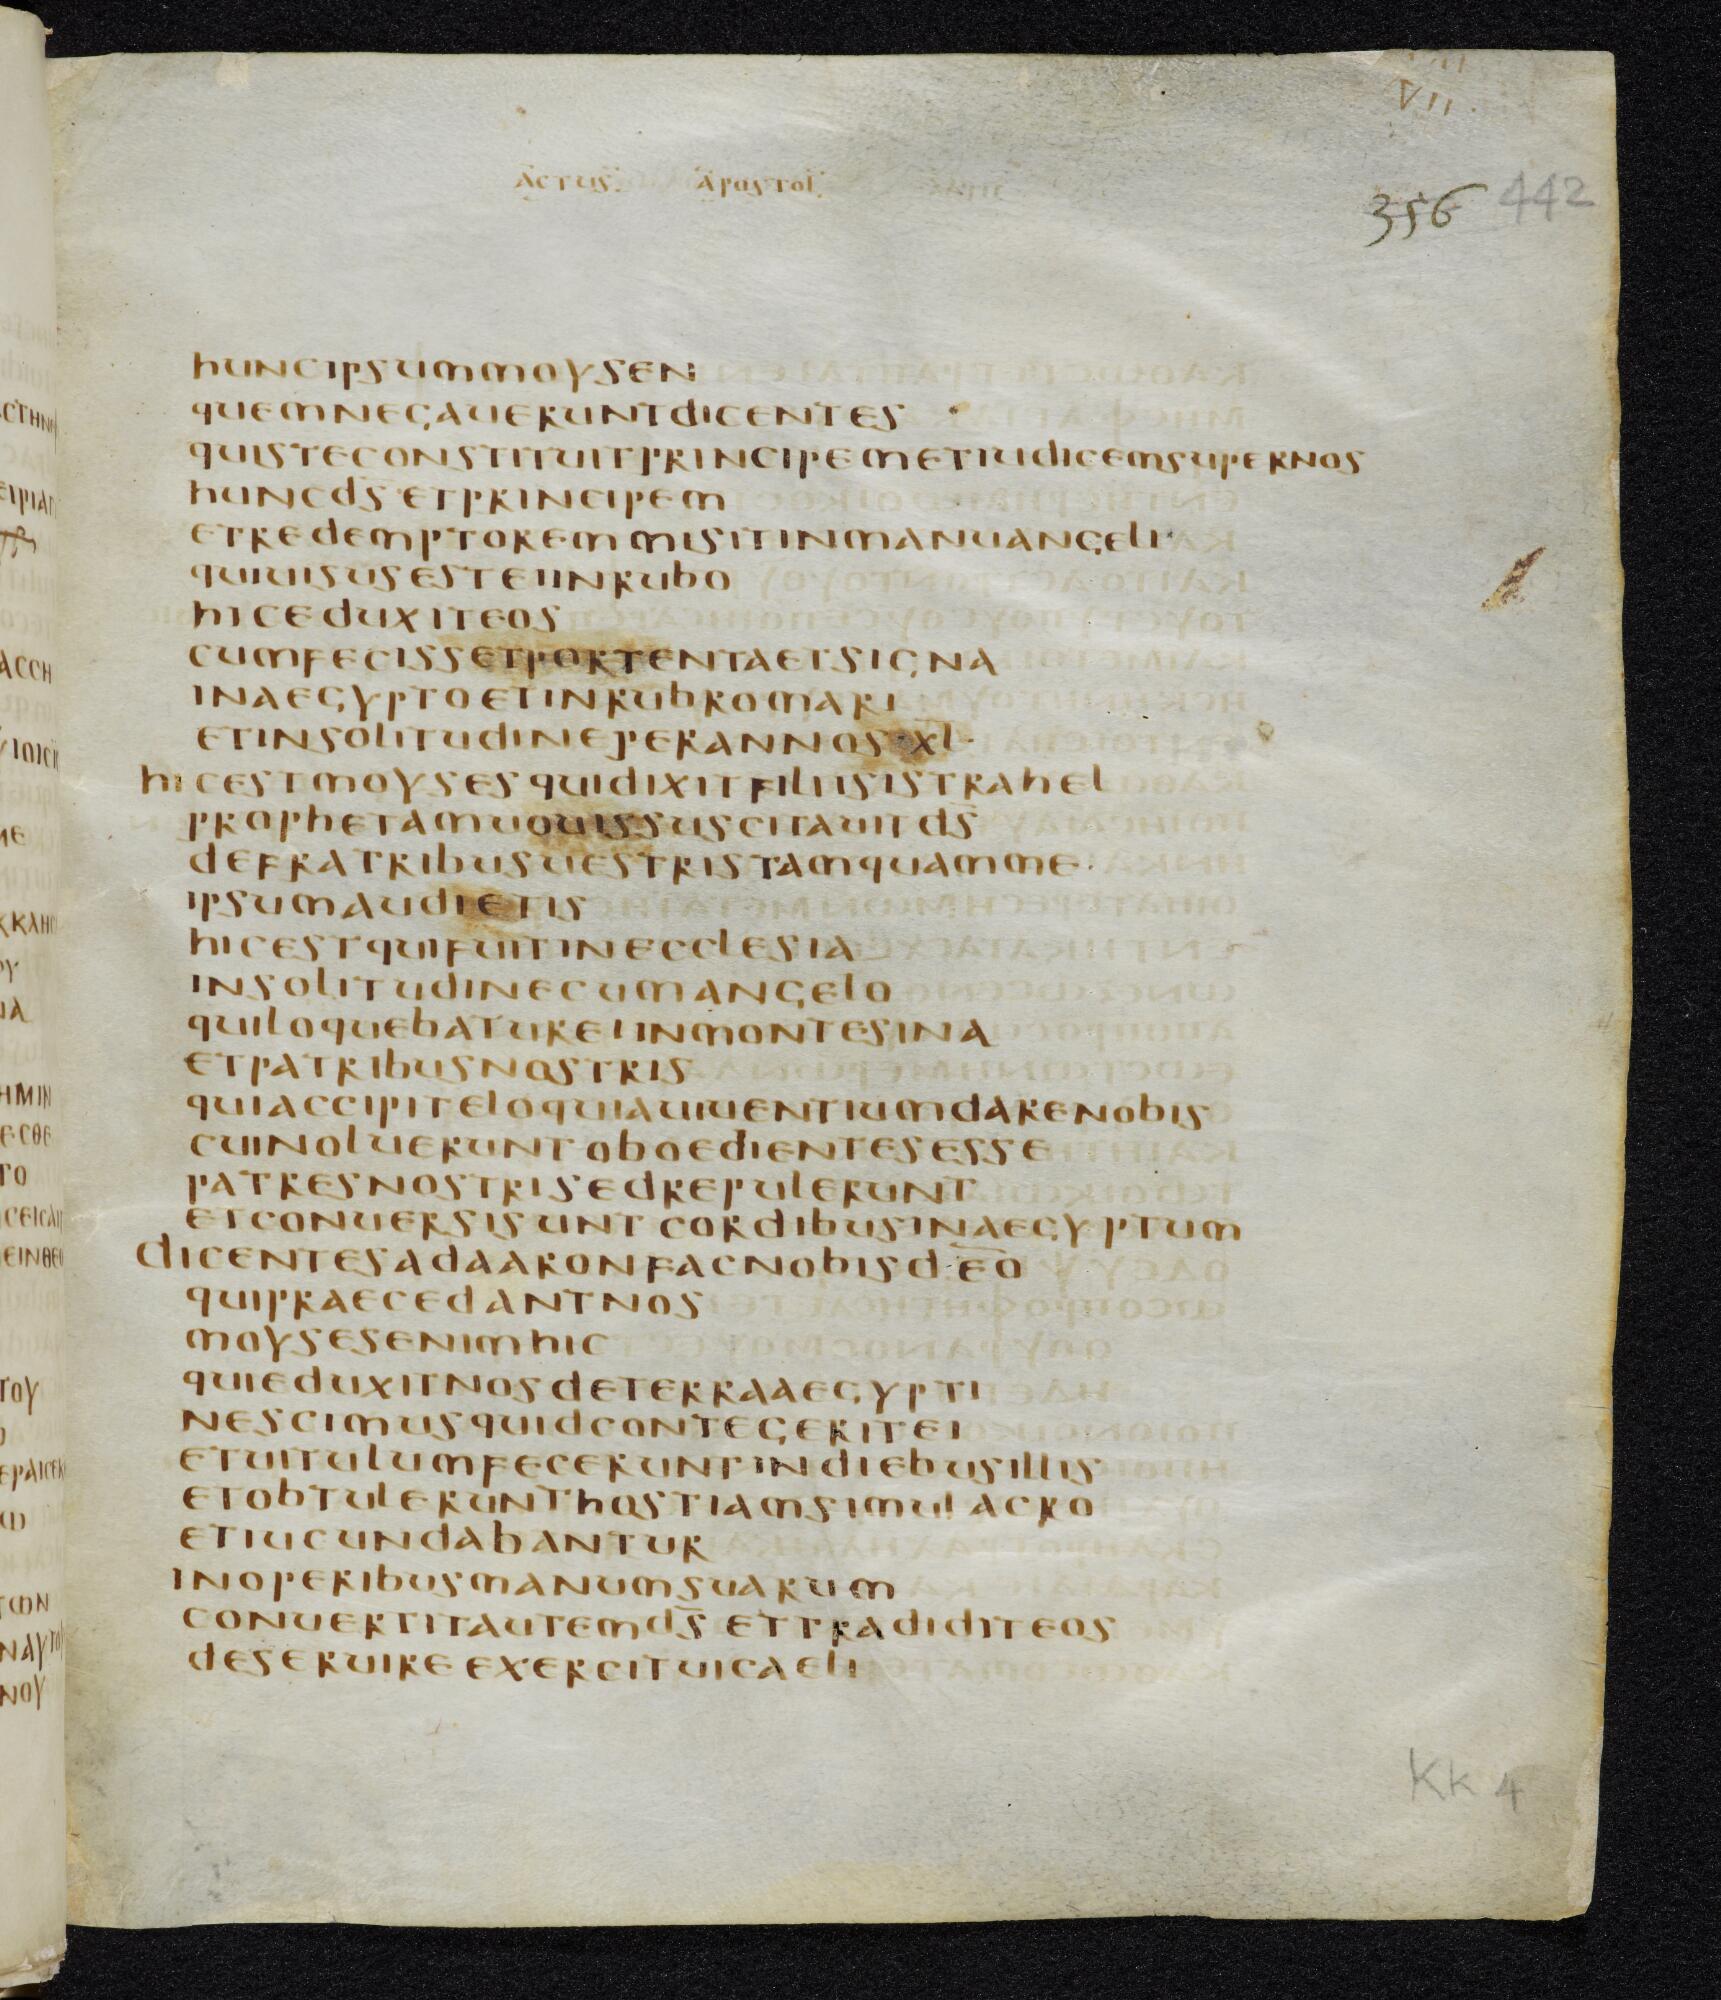 VII
actus apostol
356 442
huncipsummoysen
quemnegaueruntdicentes
quisteconstituitprincipemetiudicemsupernos
huncds̄ etprincipem
etredemptoremmisitinmanuangeli
quiuisusesteiinrubo
hiceduxiteos
cumfecissetportentaetsigna
inaegyptoetinrubromari
etinsolitudineperannos·xl·
hicestmoysesquidixitfiliisistrahel
prophetamuouissuscitauitds̄
defratribusuestristamquamme·
ipsumaudietis
hicestquifuitinecclesia
insolitudinecumangelo
quiloquebatureiinmontesina
etpatribusnostris
quiaccipiteloquiauiuentiumdarenobis
cuinolueruntoboedientesesse
patresnostrisedrepulerunt
etconuersisunt cordibusinaegyptum
dicentesadaaronfacnobisdēo
quipraecedantnos
moysesenimhic
quieduxitnosdeterraaegypti
nescimusquidcontegeritei
etuitulumfeceruntindiebusillis
etobtulerunthostiamsimulacro
etiucundabantur
inoperibusmanumsuarum
conuertitautemds̄ ettradiditeos
deseruireexercituicaeli
Kk 4